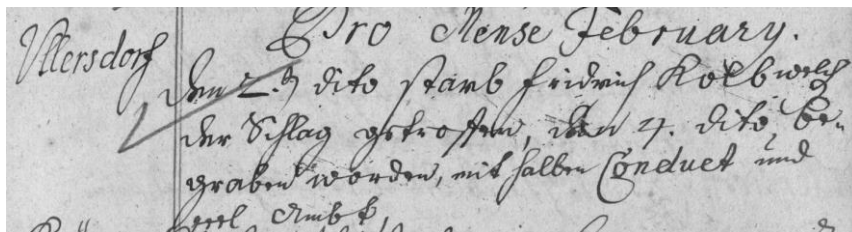 Pro Mense February.
Ullersdorf
den 2.t dito starb Fridrich Kolb welch
der Schlag getroffen, den 4. dito, be-
graben worden, mit halben Conduct und
Ambt,